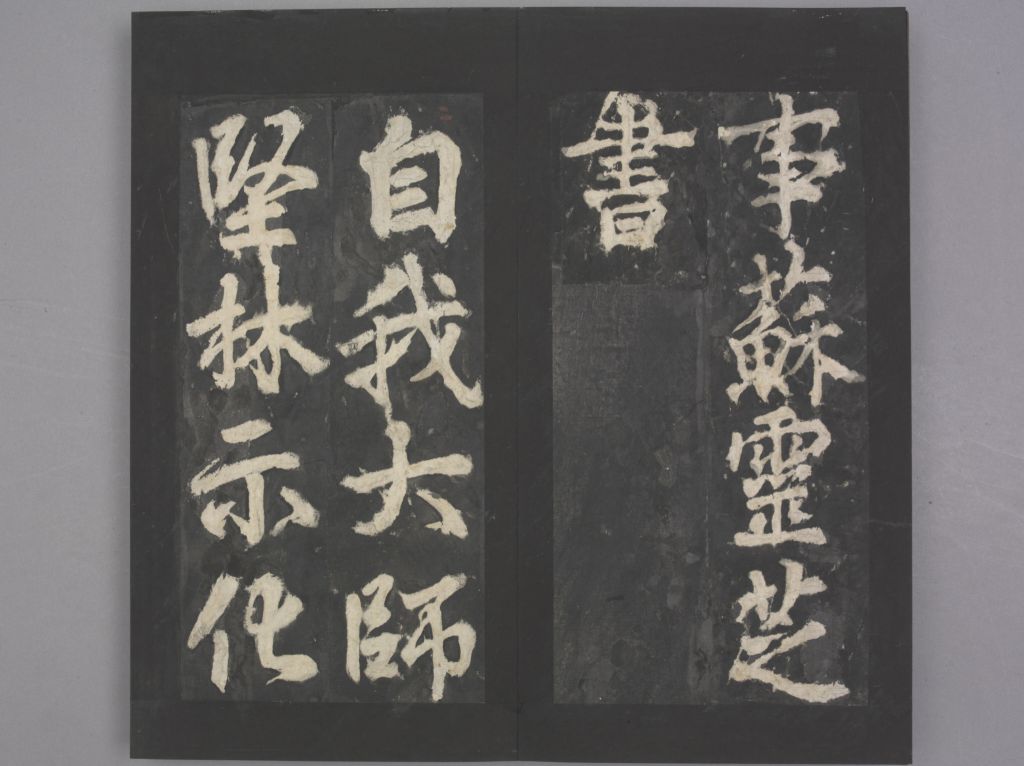 事蘇靈芝
書
自我大師
堅林示化